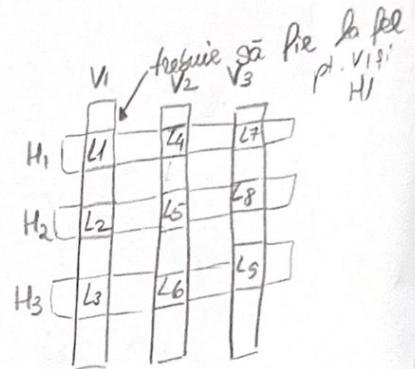 trebuie să fie la fel
pt. V1 și
H1
V1 V2 V3
H1 L1 L4 L7
H2 L2 L5 L8
H3 L3 L6 L9